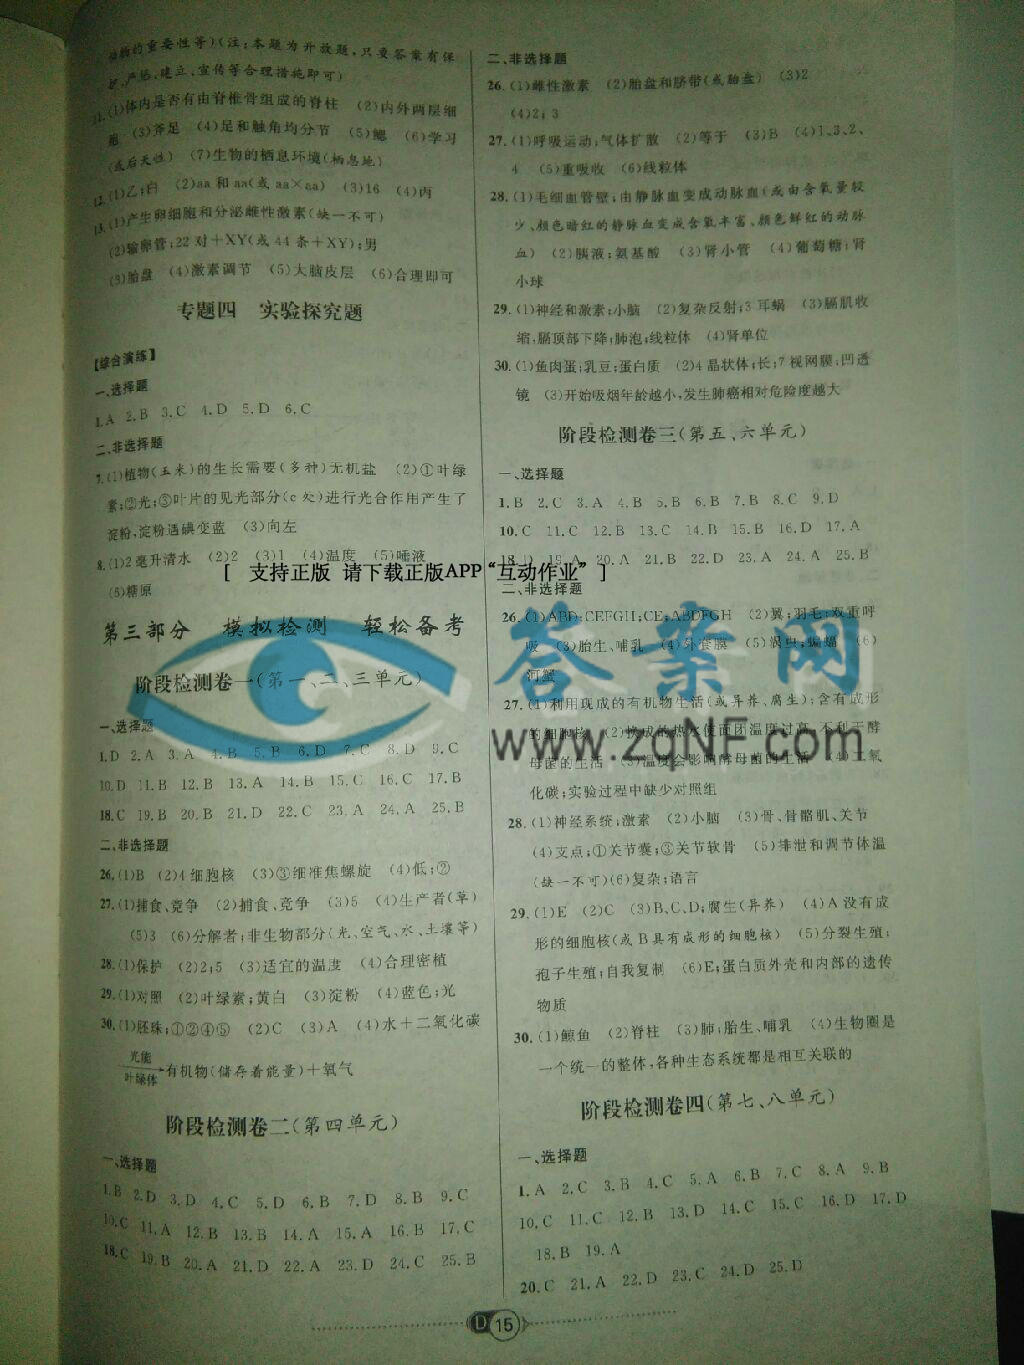 动物的重要性等)(注:本题为开放题,只要答案有保
护、严惩、建立、宣传等合理措施即可)
11.(1)体内是否有由脊椎骨组成的脊柱 (2)内外两层细
胞 (3)斧足 (4)足和触角均分节 (5)鳃 (6)学习
(或后天性) (7)生物的栖息环境(栖息地)
12.(1)乙;白 (2)aa和aa(或aa×aa) (3)16 (4)丙
13.(1)产生卵细胞和分泌雌性激素(缺一不可)
(2)输卵管;22对+XY(或44条+XY);男
(3)胎盘 (4)激素调节 (5)大脑皮层 (6)合理即可
专题四 实验探究题
【综合演练】
一、选择题
1.A 2.B 3.C 4.D 5.D 6.C
二、非选择题
7.(1)植物(玉米)的生长需要(多种)无机盐 (2)①叶绿
素;②光;③叶片的见光部分(c处)进行光合作用产生了
淀粉,淀粉遇碘变蓝 (3)向左
8.(1)2毫升清水 (2)2 (3)1 (4)温度 (5)唾液
(6)糖原
[ 支持正版 请下载正版APP“互动作业” ]
第三部分 模拟检测 轻松备考
阶段检测卷一(第一、二、三单元)
一、选择题
1.D 2.A 3.A 4.B 5.B 6.D 7.C 8.D 9.C
10.D 11.B 12.B 13.A 14.B 15.C 16.C 17.B
18.C 19.B 20.B 21.D 22.C 23.A 24.A 25.B
二、非选择题
26.(1)B (2)4细胞核 (3)③细准焦螺旋 (4)低;②
27.(1)捕食、竞争 (2)捕食、竞争 (3)5 (4)生产者(草)
(5)3 (6)分解者;非生物部分(光、空气、水、土壤等)
28.(1)保护 (2)2;5 (3)适宜的温度 (4)合理密植
29.(1)对照 (2)叶绿素;黄白 (3)淀粉 (4)蓝色;光
30.(1)胚珠;①②④⑤ (2)C (3)A (4)水+二氧化碳
光能
叶绿体
有机物(储存着能量)+氧气
阶段检测卷二(第四单元)
一、选择题
1.B 2.D 3.D 4.C 5.D 6.D 7.D 8.B 9.C
10.C 11.A 12.B 13.B 14.A 15.A 16.B 17.C
18.C 19.B 20.A 21.D 22.A 23.D 24.C 25.B
二、非选择题
26.(1)雌性激素 (2)胎盘和脐带(或胎盘) (3)2
(4)2;3
27.(1)呼吸运动;气体扩散 (2)等于 (3)B (4)1、3、2、
4 (5)重吸收 (6)线粒体
28.(1)毛细血管壁;由静脉血变成动脉血(或由含氧量较
少、颜色暗红的静脉血变成含氧丰富、颜色鲜红的动脉
血) (2)胰液;氨基酸 (3)肾小管 (4)葡萄糖;肾
小球
29.(1)神经和激素;小脑 (2)复杂反射;3耳蜗 (3)膈肌收
缩,膈顶部下降;肺泡;线粒体 (4)肾单位
30.(1)鱼肉蛋;乳豆;蛋白质 (2)4晶状体;长;7视网膜;凹透
镜 (3)开始吸烟年龄越小,发生肺癌相对危险度越大
阶段检测卷三(第五、六单元)
一、选择题
1.B 2.C 3.A 4.B 5.B 6.B 7.B 8.C 9.D
10.C 11.C 12.B 13.C 14.B 15.B 16.D 17.A
18.D 19.A 20.A 21.B 22.B 23.A 24.A 25.B
二、非选择题
26.(1)ABD;CEFGH;CE;ABDFGH (2)翼;羽毛;双重呼
吸 (3)胎生、哺乳 (4)外套膜 (5)涡虫;蝙蝠 (6)
河蟹
答案网
www.zqNF.com
27.(1)利用现成的有机物生活(或异养、腐生);含有成形
的细胞核 (2)换成的热水使面团温度过高,不利于酵
母菌的生活 (3)温度会影响酵母菌的生活 (4)二氧
化碳;实验过程中缺少对照组
28.(1)神经系统;激素 (2)小脑 (3)骨、骨骼肌、关节
(4)支点;①关节囊;③关节软骨 (5)排泄和调节体温
(缺一不可)(6)复杂;语言
29.(1)E (2)C (3)B、C、D;腐生(异养) (4)A没有成
形的细胞核(或B具有成形的细胞核) (5)分裂生殖;
孢子生殖;自我复制 (6)E;蛋白质外壳和内部的遗传
物质
30.(1)鲸鱼 (2)脊柱 (3)肺;胎生、哺乳 (4)生物圈是
一个统一的整体,各种生态系统都是相互关联的
阶段检测卷四(第七、八单元)
一、选择题
1.A 2.C 3.B 4.C 5.A 6.B 7.C 8.A 9.B
10.C 11.C 12.B 13.D 14.C 15.C 16.D 17.D
18.B 19.A
20.C 21.A 22.D 23.C 24.D 25.D
D 15